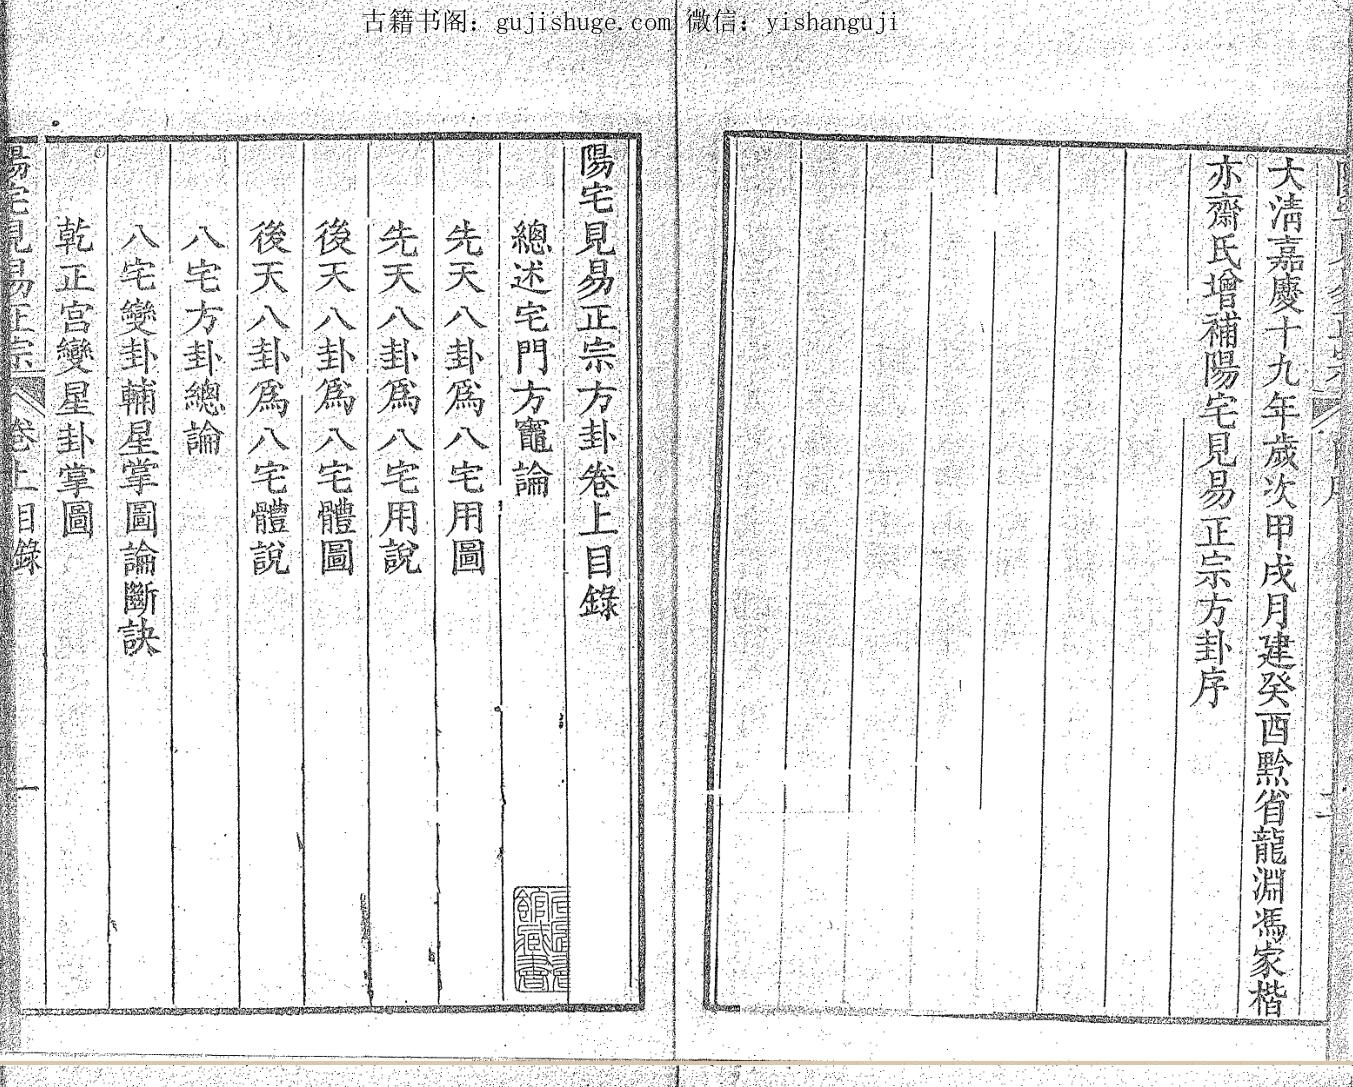 古籍书阁：gujishuge.com 微信：yishanguji
大清嘉慶十九年歲次甲戌月建癸酉黔省龍淵馮家楷
亦齋氏增補陽宅見易正宗方卦序
陽宅見易正宗方卦卷上目錄
總述宅門方竈論
先天八卦爲八宅用圖
先天八卦爲八宅用說
後天八卦爲八宅體圖
後天八卦爲八宅體說
八宅方卦總論
八宅變卦輔星掌圖論斷訣
乾正宮變星卦掌圖
陽宅見易正宗 卷上目錄 一